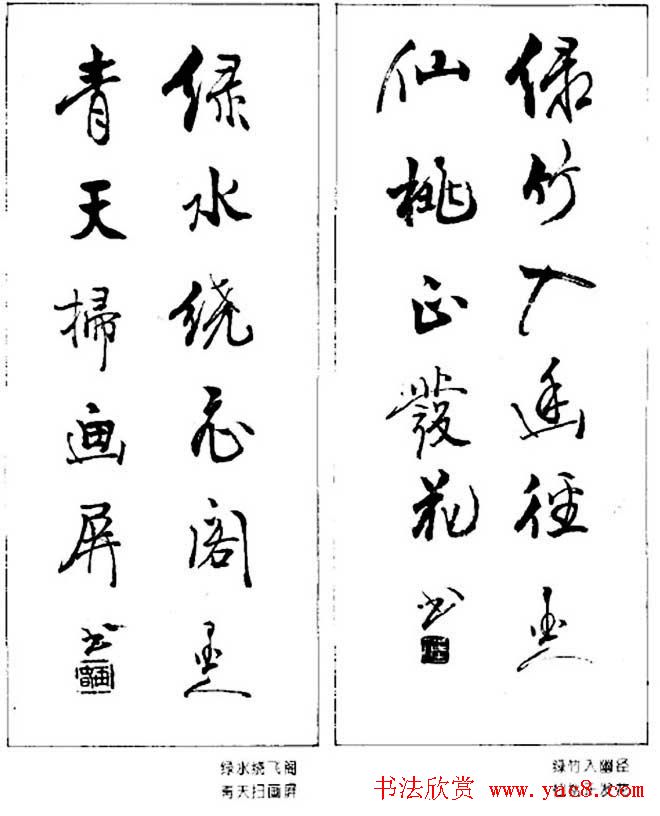 绿竹入幽径
仙桃正發花 书
绿水绕飞阁
青天掃画屏 书
绿水绕飞阁
青天扫画屏
绿竹入幽径
书法欣赏 www.yac8.com